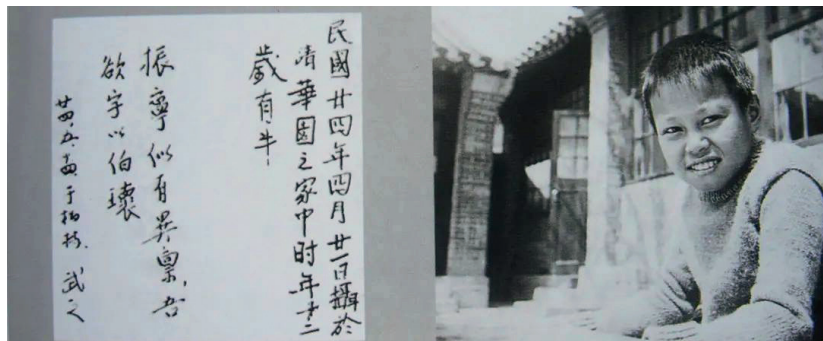 民國廿四年四月廿一日攝於
清華園之家中时年十二
歲有半
振寧似有異禀，吾
欲字以伯瓌
廿四、五、于柏林 武之